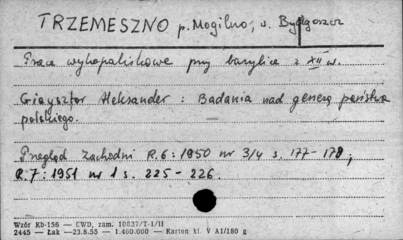 TRZEMESZNO p. Mogilno, w. Bydgoszcz
Prace wykopaliskowe przy bazylice z XII w.
Gieysztor Aleksander : Badania nad genezą państwa
polskiego.
Przegląd Zachodni R.6: 1950 nr 3/4 s. 177-178;
R.7: 1951 nr 1 s. 225-226.
Wzór Kb-156 — CWD, zam. 10837/T-1/II
2445 — Łak —23.8.55 — 1.460.000 — Karton kl. V A1/180 g